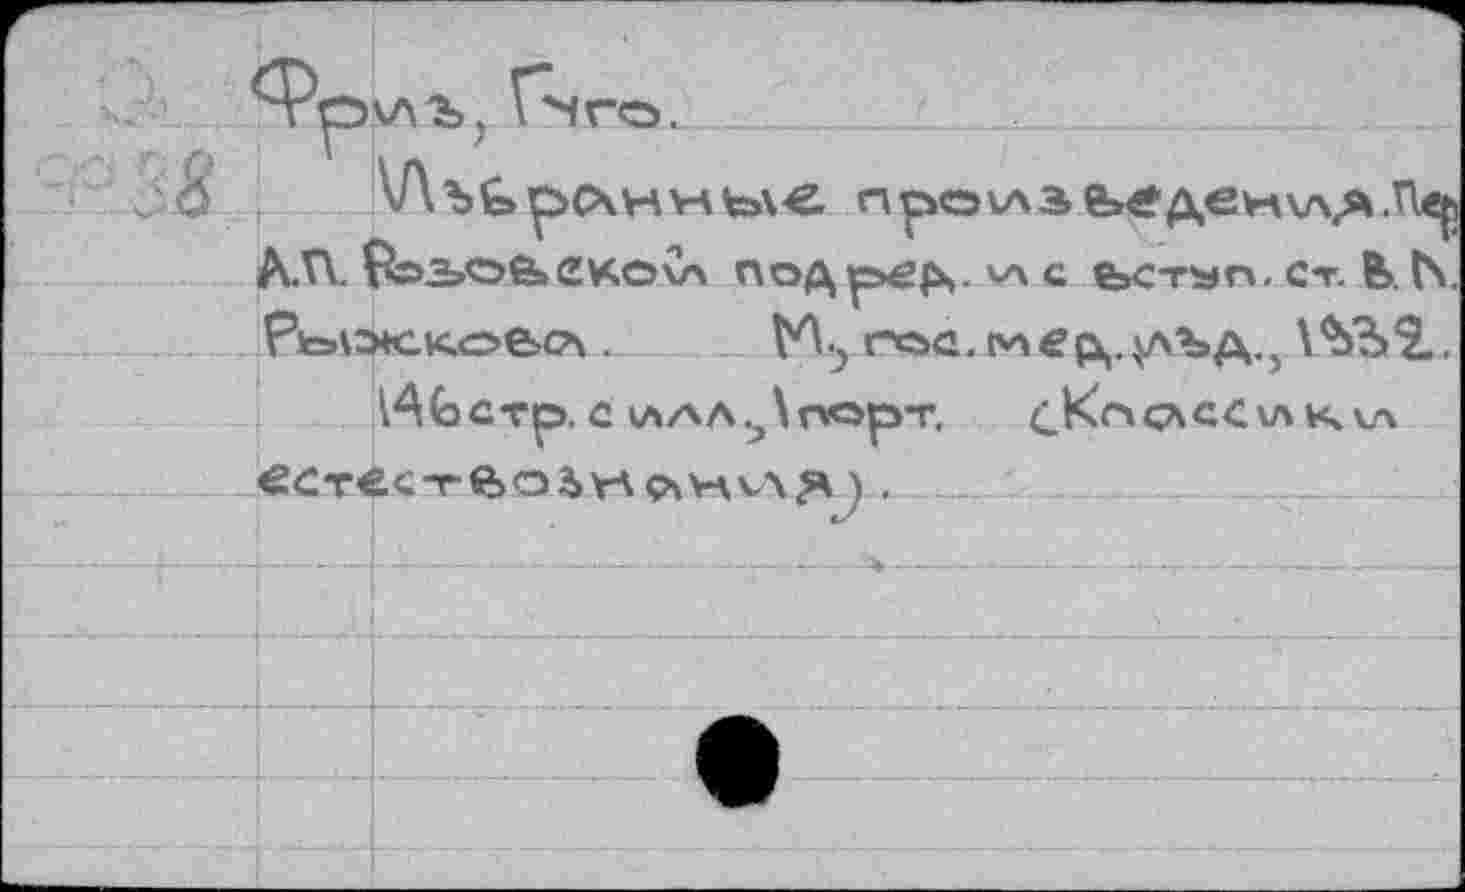 Фриз, Гуго.
38 Избранные произведения. Пер
А.П. Розовской под ред. и с вступ. ст. В.К.
Рыжкова. М., гос. мед. изд., 1932.
стр. с илл., 1 порт. (Классики
естествознания).